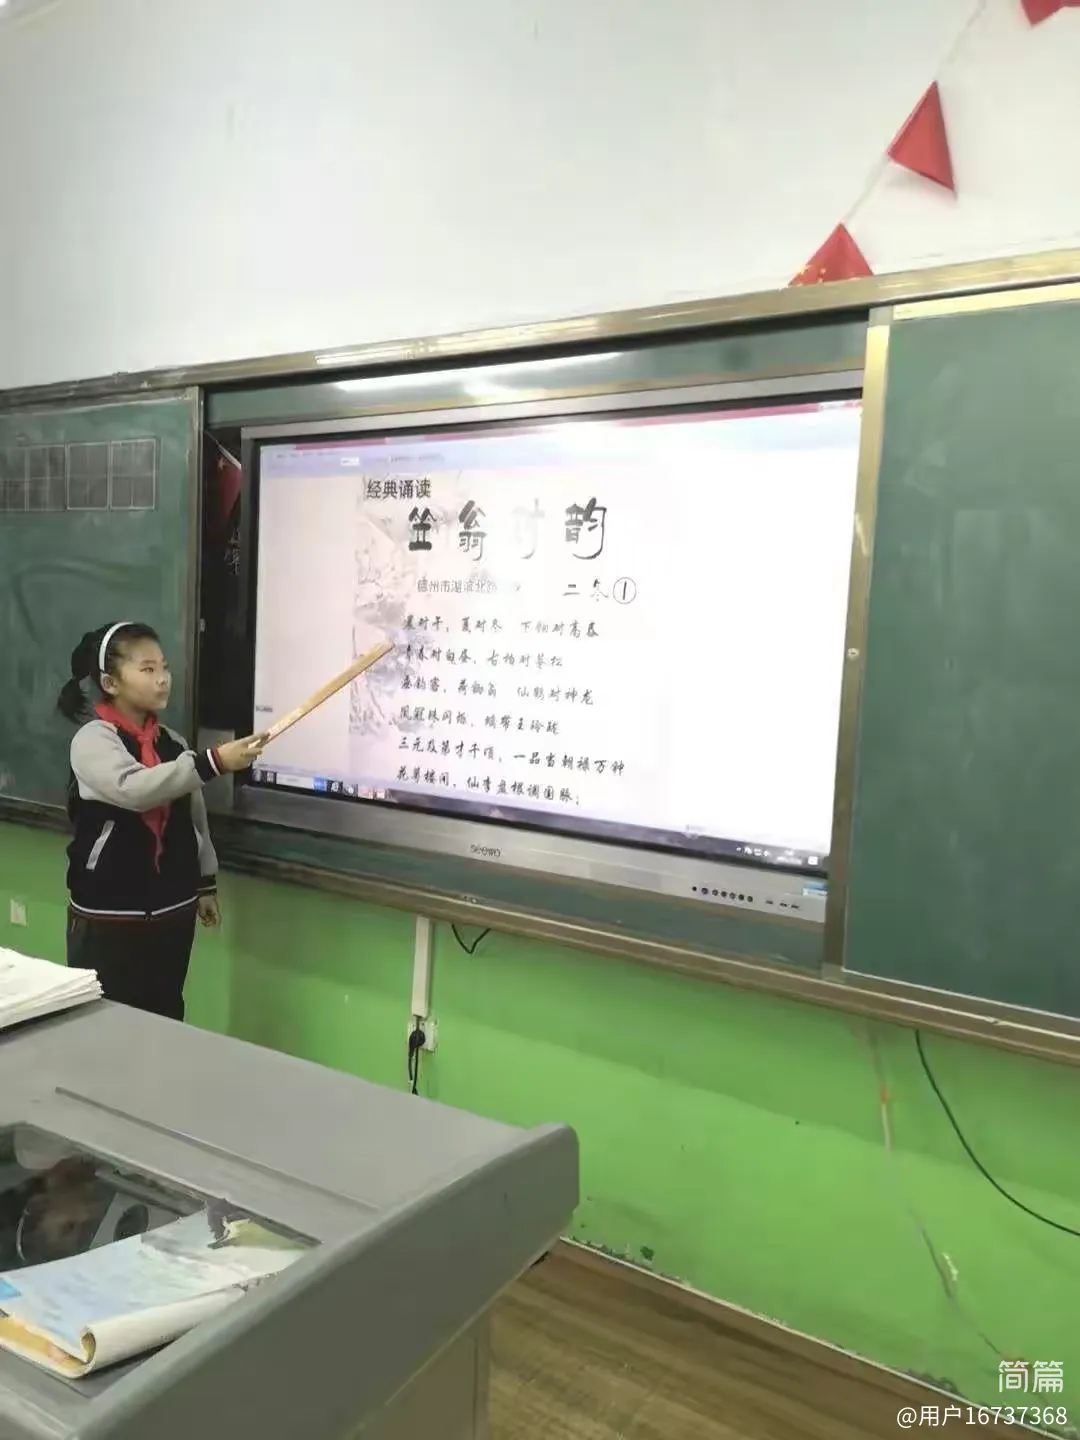 经典诵读
笠翁对韵
德州市湖滨北路
二冬①
晨对午，夏对冬 下饷对高舂
青春对白昼，古柏对苍松
垂钓客，荷锄翁 仙鹤对神龙
凤冠珠闪烁，螭带玉玲珑
三元及第才千顷，一品当朝禄万钟
花萼楼间，仙李盘根调国脉；
seewo
简篇
@用户16737368